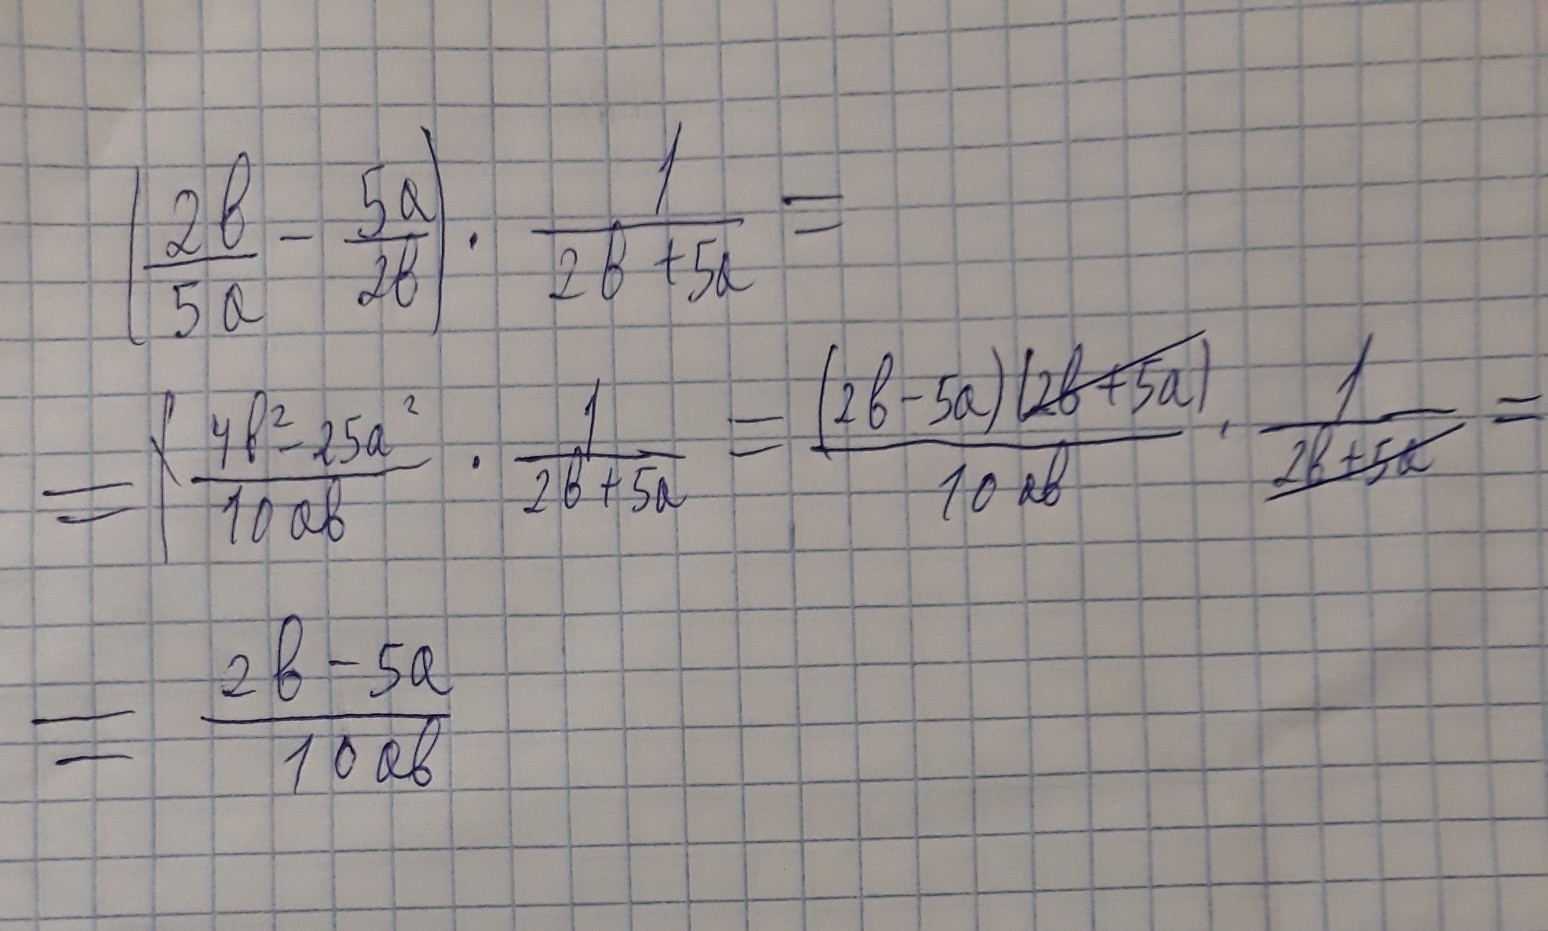 (2b/5a - 5a/2b) · 1/(2b + 5a) =
= (4b² - 25a²/10ab · 1/(2b + 5a) = (2b - 5a)(2b + 5a)/10ab · 1/(2b + 5a) =
= (2b - 5a)/10ab